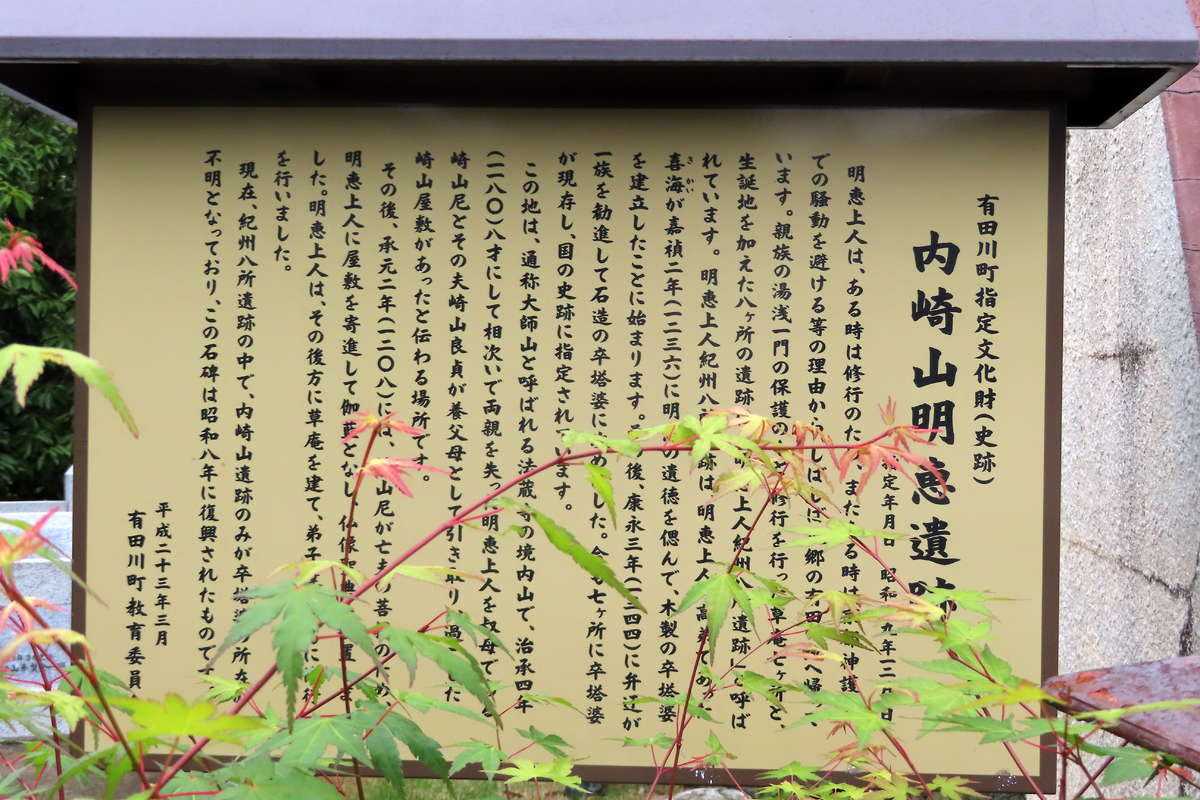 有田川町指定文化財(史跡)
内崎山明恵遺跡
定年月日 昭和 九年三 日
明恵上人は、ある時は修行のた また る時は 神護
での騒動を避ける等の理由か しば に 郷の有田 へ帰
います。親族の湯浅一門の保護の 修行を行っ 草庵七ヶ所と、
生誕地を加えた八ヶ所の遺跡 明 上人紀州八 遺跡 と呼ば
れています。明恵上人紀州八 跡は、明恵上 高弟であ
きかい
喜海が嘉禎二年(一二三六)に明 の遺徳を偲んで、木製の卒塔婆
を建立したことに始まります。 後、康永三年(一三四四)に弁迂が
一族を勧進して石造の卒塔婆に め した。今 七ヶ所に卒塔婆
が現存し、国の史跡に指定され います。
この地は、通称大師山と呼ばれる法蔵寺の境内山で、治承四年
(一一八〇)八才にして相次いで両親を失っ 明恵上人を叔母で る
崎山尼とその夫崎山良貞が養父母として引き取り た
崎山屋敷があったと伝わる場所です。
その後、承元二年(一二〇八)には、 山尼が亡夫の菩 のため
明恵上人に屋敷を寄進して伽藍となし、仏像 置
した。明恵上人は、その後方に草庵を建て、弟子 に 行
を行いました。
現在、紀州八所遺跡の中で、内崎山遺跡のみが卒塔婆 所在
不明となっており、この石碑は昭和八年に復興されたもので
平成二十三年三月
有田川町教育委員